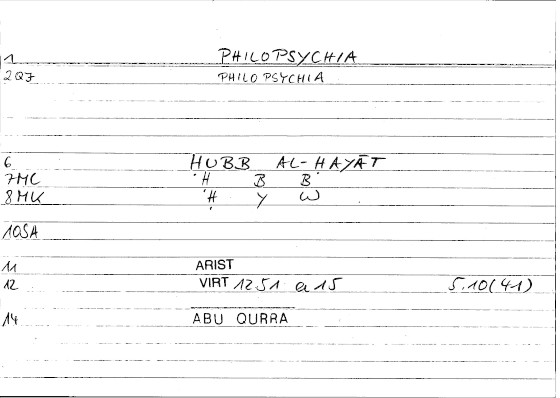 1 PHILOPSYCHIA
2QJ PHILOPSYCHIA
6 HUBB AL-HAYĀT
7MC ʿH B B
8MK ʿH Y W
10SA
11 ARIST
12 VIRT 1251 a 15 5.10(41)
14 ABU QURRA